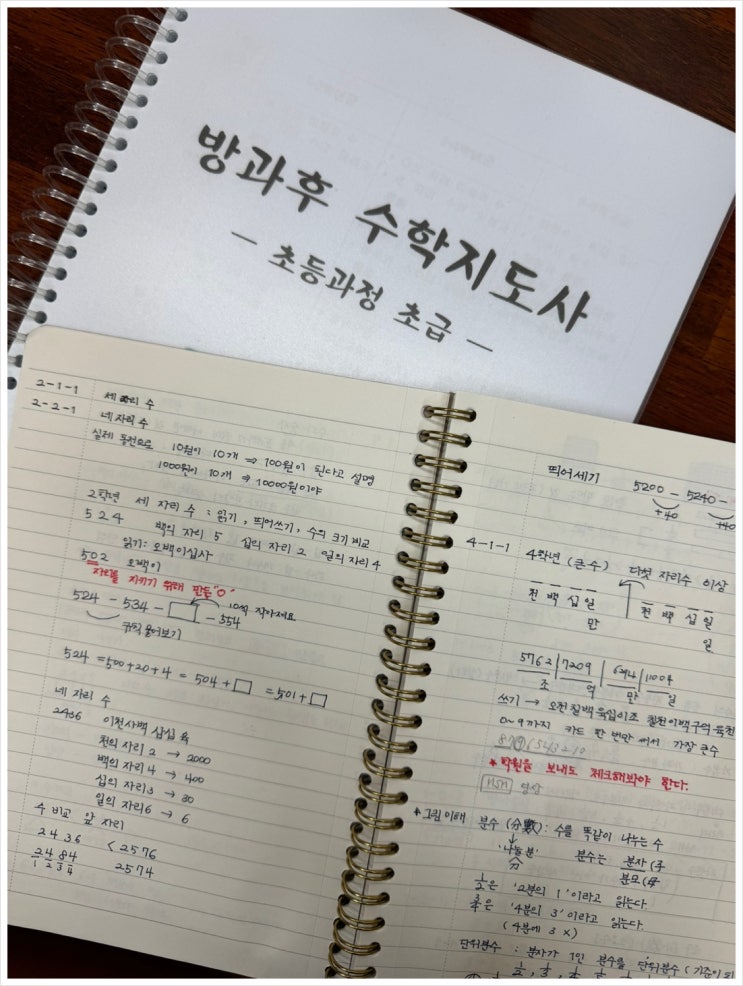 방과후 수학지도사
- 초등과정 초급 -
2-1-1 세 자리 수
2-2-1 네 자리 수
실제 동전으로 10원이 10개 ⇒ 100원이 된다고 설명
1000원이 10개 ⇒ 10000원이야
2학년 세 자리 수 : 읽기, 띄어쓰기, 수의 크기 비교
524 백의 자리 5 십의 자리 2 일의 자리 4
읽기: 오백이십사
502 오백이
자리를 지키기 위해 만든 "0"
524 - 534 - □ - 554
10씩 작아져요
규칙 물어보기
524 = 500+20+4 = 504+□ = 501+□
네 자리 수
2436 이천사백 삼십 육
천의 자리 2 → 2000
백의 자리 4 → 400
십의 자리 3 → 30
일의 자리 6 → 6
수 비교 앞 자리
2436 < 2576
2484 2574
1 2 3 4
띄어세기 5200 - 5240 -
+40 +40
4-1-1 4학년 (큰수) 다섯 자리수 이상
천 백 십 일 천 백 십 일
만 일
5762 7209 6294 11004
조 억 만 일
쓰기 → 오천칠백육십이조 칠천이백구억 육천
0~9까지 카드 한 번만 써서 가장 큰수
9876543210
* 학원을 보내도 체크해봐야 한다.
HSM 영상
* 그림이해 분수 (分數): 수를 똑같이 나누는 수
'나눌 분' 분수는 분자 (子
分 분모 (母
1/2은 '2분의 1'이라고 읽는다.
3/4은 '4분의 3'이라고 읽는다.
(4분에 3 X)
단위분수 : 분자가 1인 분수를 단위분수 (기준이 되
1/2, 1/3, 1/4